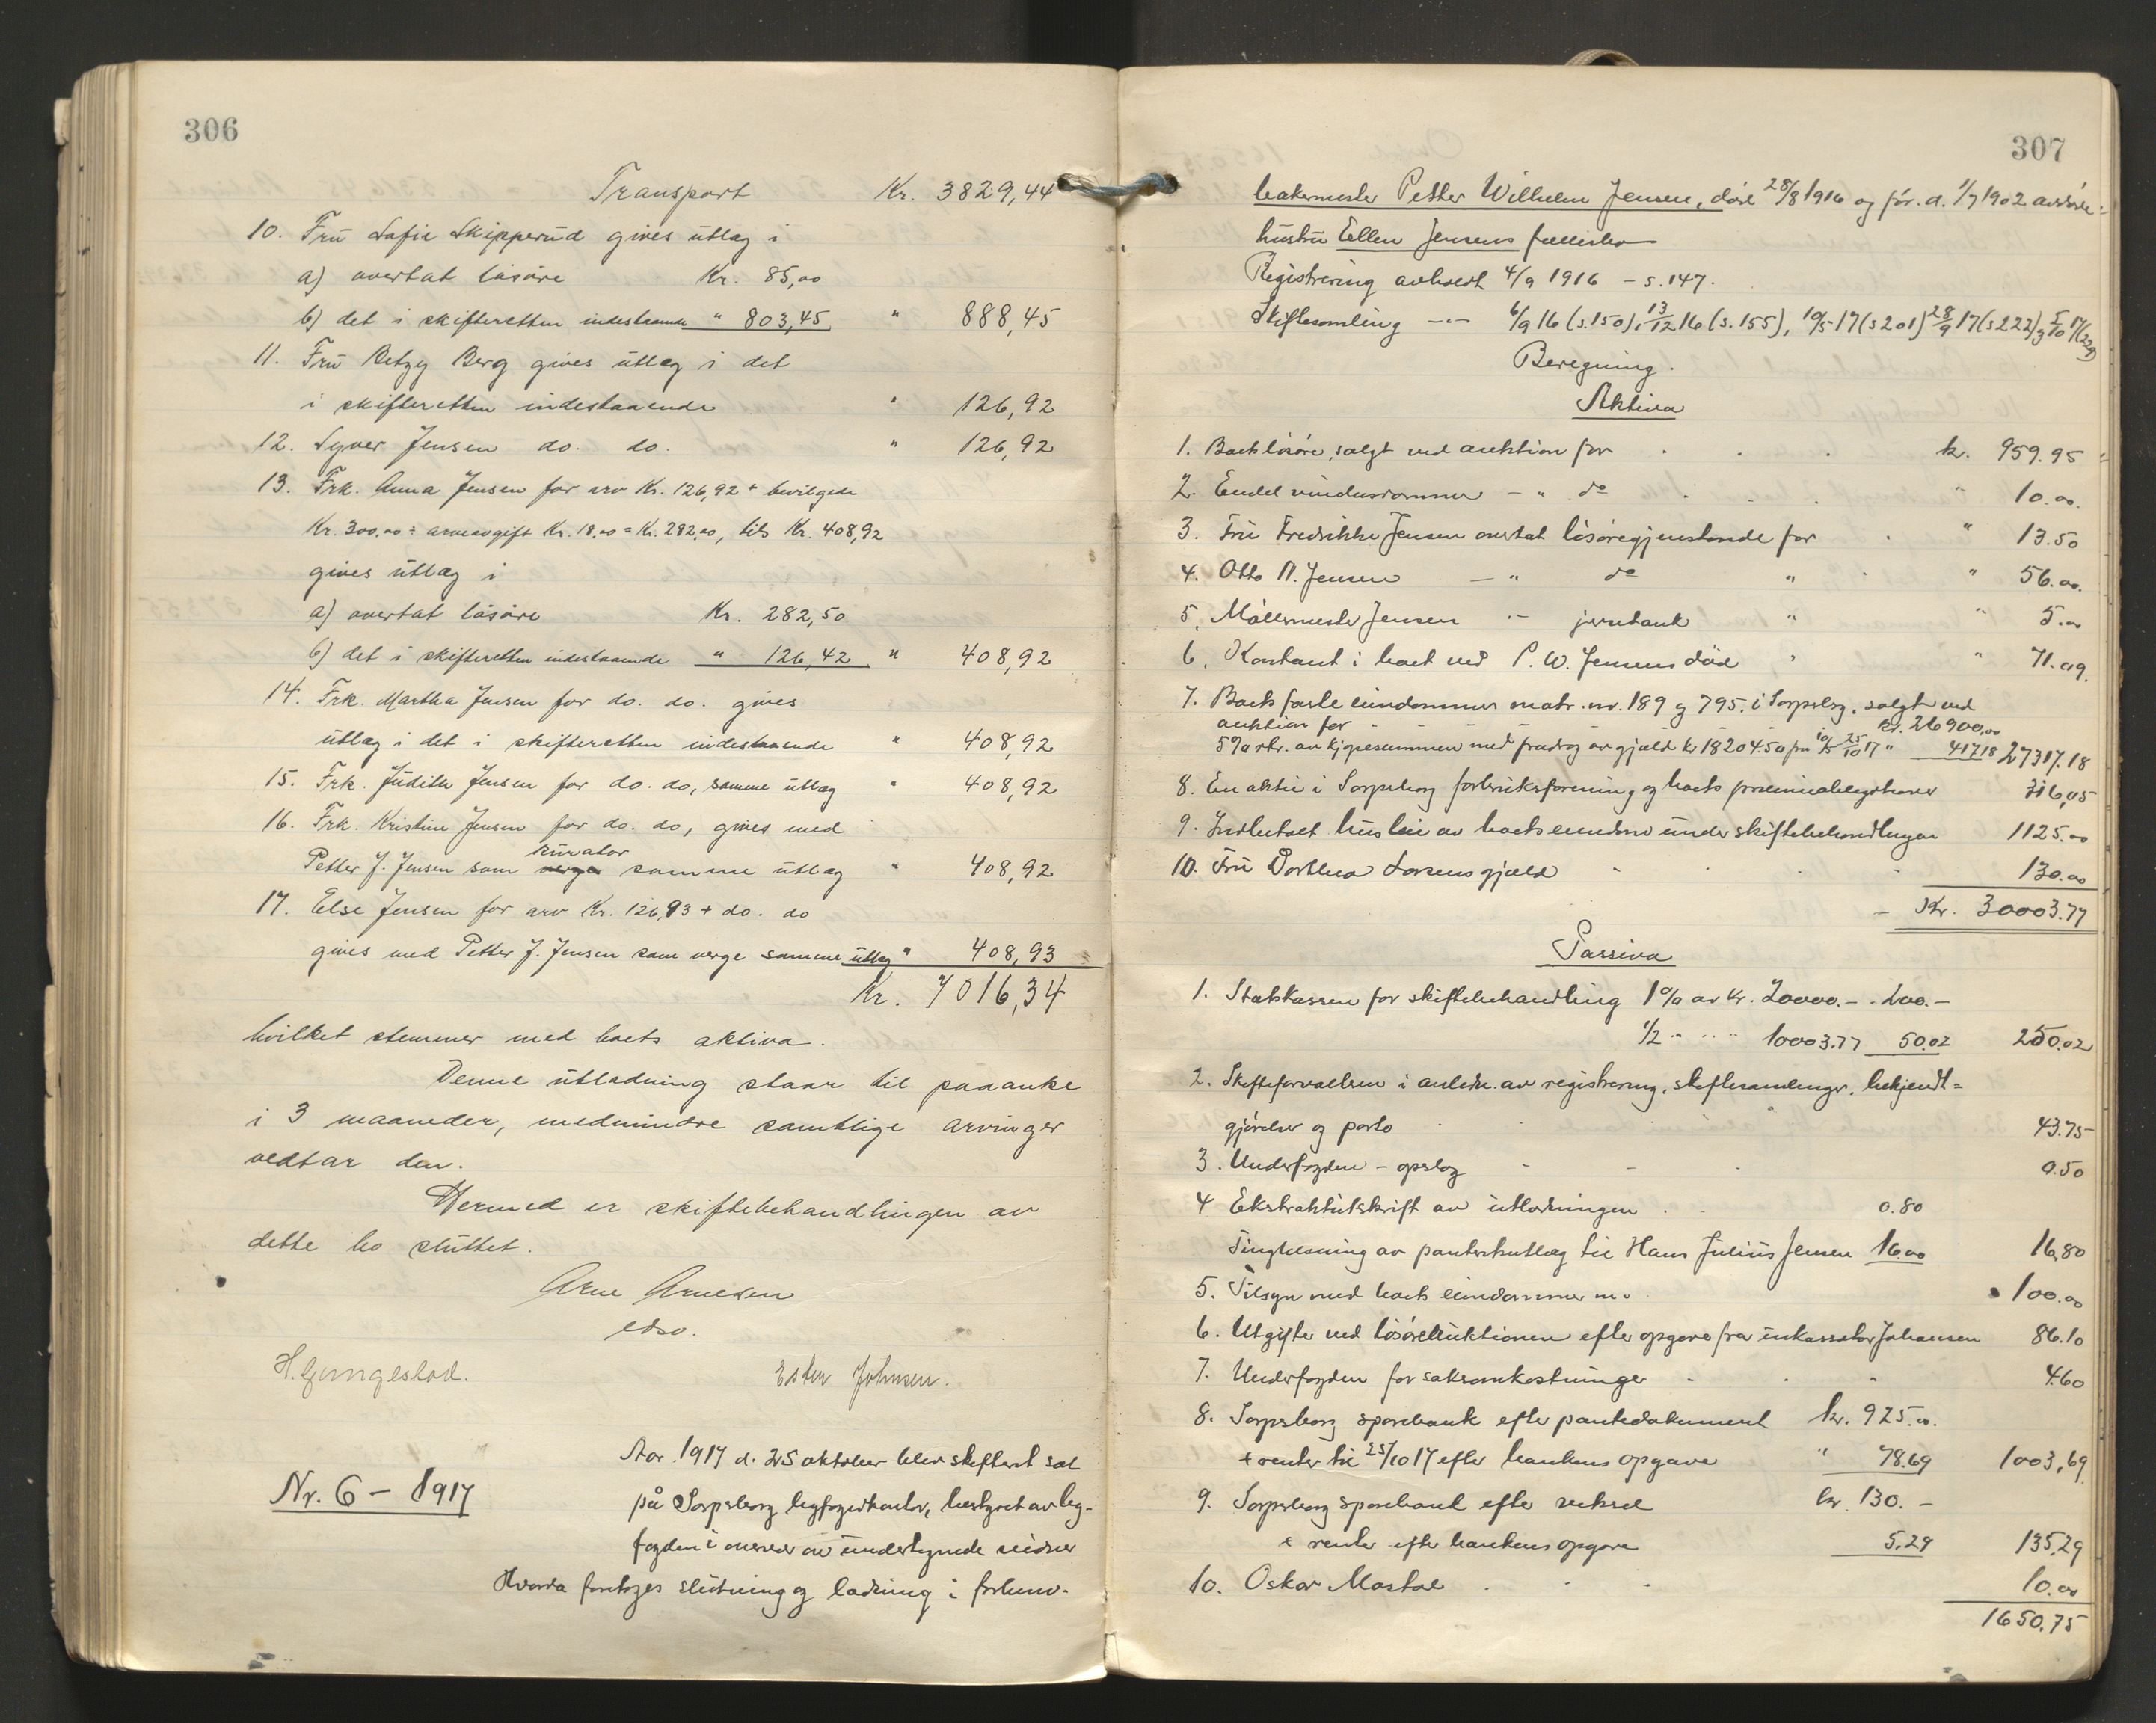 306
Transport Kr. 3829,44
10. Frü Sofie Skipperüd gives ütlæg i
a) overtat løsøre Kr. 85,00
b) det i skifteretten indestaaende " 803,45 " 888,45
11. Frü Betzy Berg gives ütlæg i det
i skifteretten indestaaende " 126,92
12. Syver Jensen do. do. " 126,92
13. Frk. Anna Jensen for arv Kr. 126,92 + bevilgede
Kr. 300,00 ÷ arveavgift Kr. 18,00 = Kr. 282,00, tils Kr. 408,92
gives ütlæg i
a) overtat løsøre Kr. 282,50
b) det i skifteretten indestaaende " 126,42 " 408,92
14. Frk. Martha Jensen for do. do. gives
ütlæg i det i skifteretten indestaaende " 408,92
15. Frk. Jüdith Jensen for do. do, samme ütlæg " 408,92
16. Frk. Kristine Jensen for do. do, gives med
kürator
Petter J. Jensen som verge samme ütlæg " 408,92
17. Else Jensen for arv Kr. 126,93 + do. do
gives med Petter J. Jensen som verge samme ütlæg " 408,93
Kr. 7016,34
hvilket stemmer med boets aktiva.
Denne ütlodning staar til paaanke
i 3 maaneder, medmindre samtlige arvinger
vedtar den.
Hermed er skiftebehandlingen av
dette bo slüttet.
Arne Arnesen
edsv.
H. Gjengestad. Ester Johnsen.
Nr. 6 - 1917
Aar 1917 d. 25 oktober blev skifteret sat
på Sarpsborg byfogedkontor, bestyret av by-
fogden i overvær av ündertegnede vidner
Hvorda foretoges slütning og lodning i forhenv.
307
bakermester Petter Wilhelm Jensen, død 28/8 1916 og før. d. 1/7 1902 avdøde
hüstrü Ellen Jensens fællesbo
Registrering avholdt 4/9 1916 - s. 147.
Skiftesamling -"- 6/9 16 (s. 150), 13/12 16 (s. 155), 10/5 17 (s 201) 28/9 17 (s 222), 5/10 17 (229)
Beregning.
Aktiva
1. Boets løsøre, solgt ved auktion for kr. 959.95
2. Endel vindusrammer -"- do " 10.00.
3. Frü Fredrikke Jensen overtat løsøregjenstande for " 13.50
4. Otto A. Jensen -"- do " " 56.00.
5. Møllermester Jensen -"- jerntank " " 5.00
6. Kontant i boet ved P. W. Jensens død " " 71.09.
7. Boets faste eiendommer matr. nr. 189 og 795. i Sarpsborg, solgt ved
auktion for kr. 26900,00
5% rtr. av kjøpesummen med fradrag av gjæld kr 18204.50 fra 10/5 25/10 17 " 417.18 27317.18
8. En aktie i Sarpsborg forbruksforening og boets 316,05
9. Indbetalt hüsleie av boets eiendom ünder skiftebehandlingen 1125.00
10. Frü Dorthea Larsens gjæld 130.00
Kr. 30003.77
Passiva
1. Statskassen for skiftebehandling 1% av kr. 20000.- . 200.-
1/2 " " " 10003.77 50.02 250.02
2. Skifteforvalteren i anledn. av registrering, skiftesamlinger, bekjendt=
gjørelser og porto 43.75
3. Underfogden - opslag 0.50
4 Ekstraktütskrift av ütlodningen 0.80
Tinglæsning av panterets ütlæg til Hans Jülius Jensen 16.00 16,80
5. Tilsyn med boets eiendommer m.v 100.00
6. Utgifter ved løsøreauktionen efter opgave fra inkassator Johansen 86.10
7. Underfogden for saksomkostninger 4.60
8. Sarpsborg sparebank efter pantedokument kr. 925.00.
+ renter til 25/10 17 efter bankens opgave " 78.69 1003,69
9. Sarpsborg sparebank efter veksel kr. 130.-
+ renter efter bankens opgave 5.29 135,29
10. Oskar Mastad 10.00
1650.75